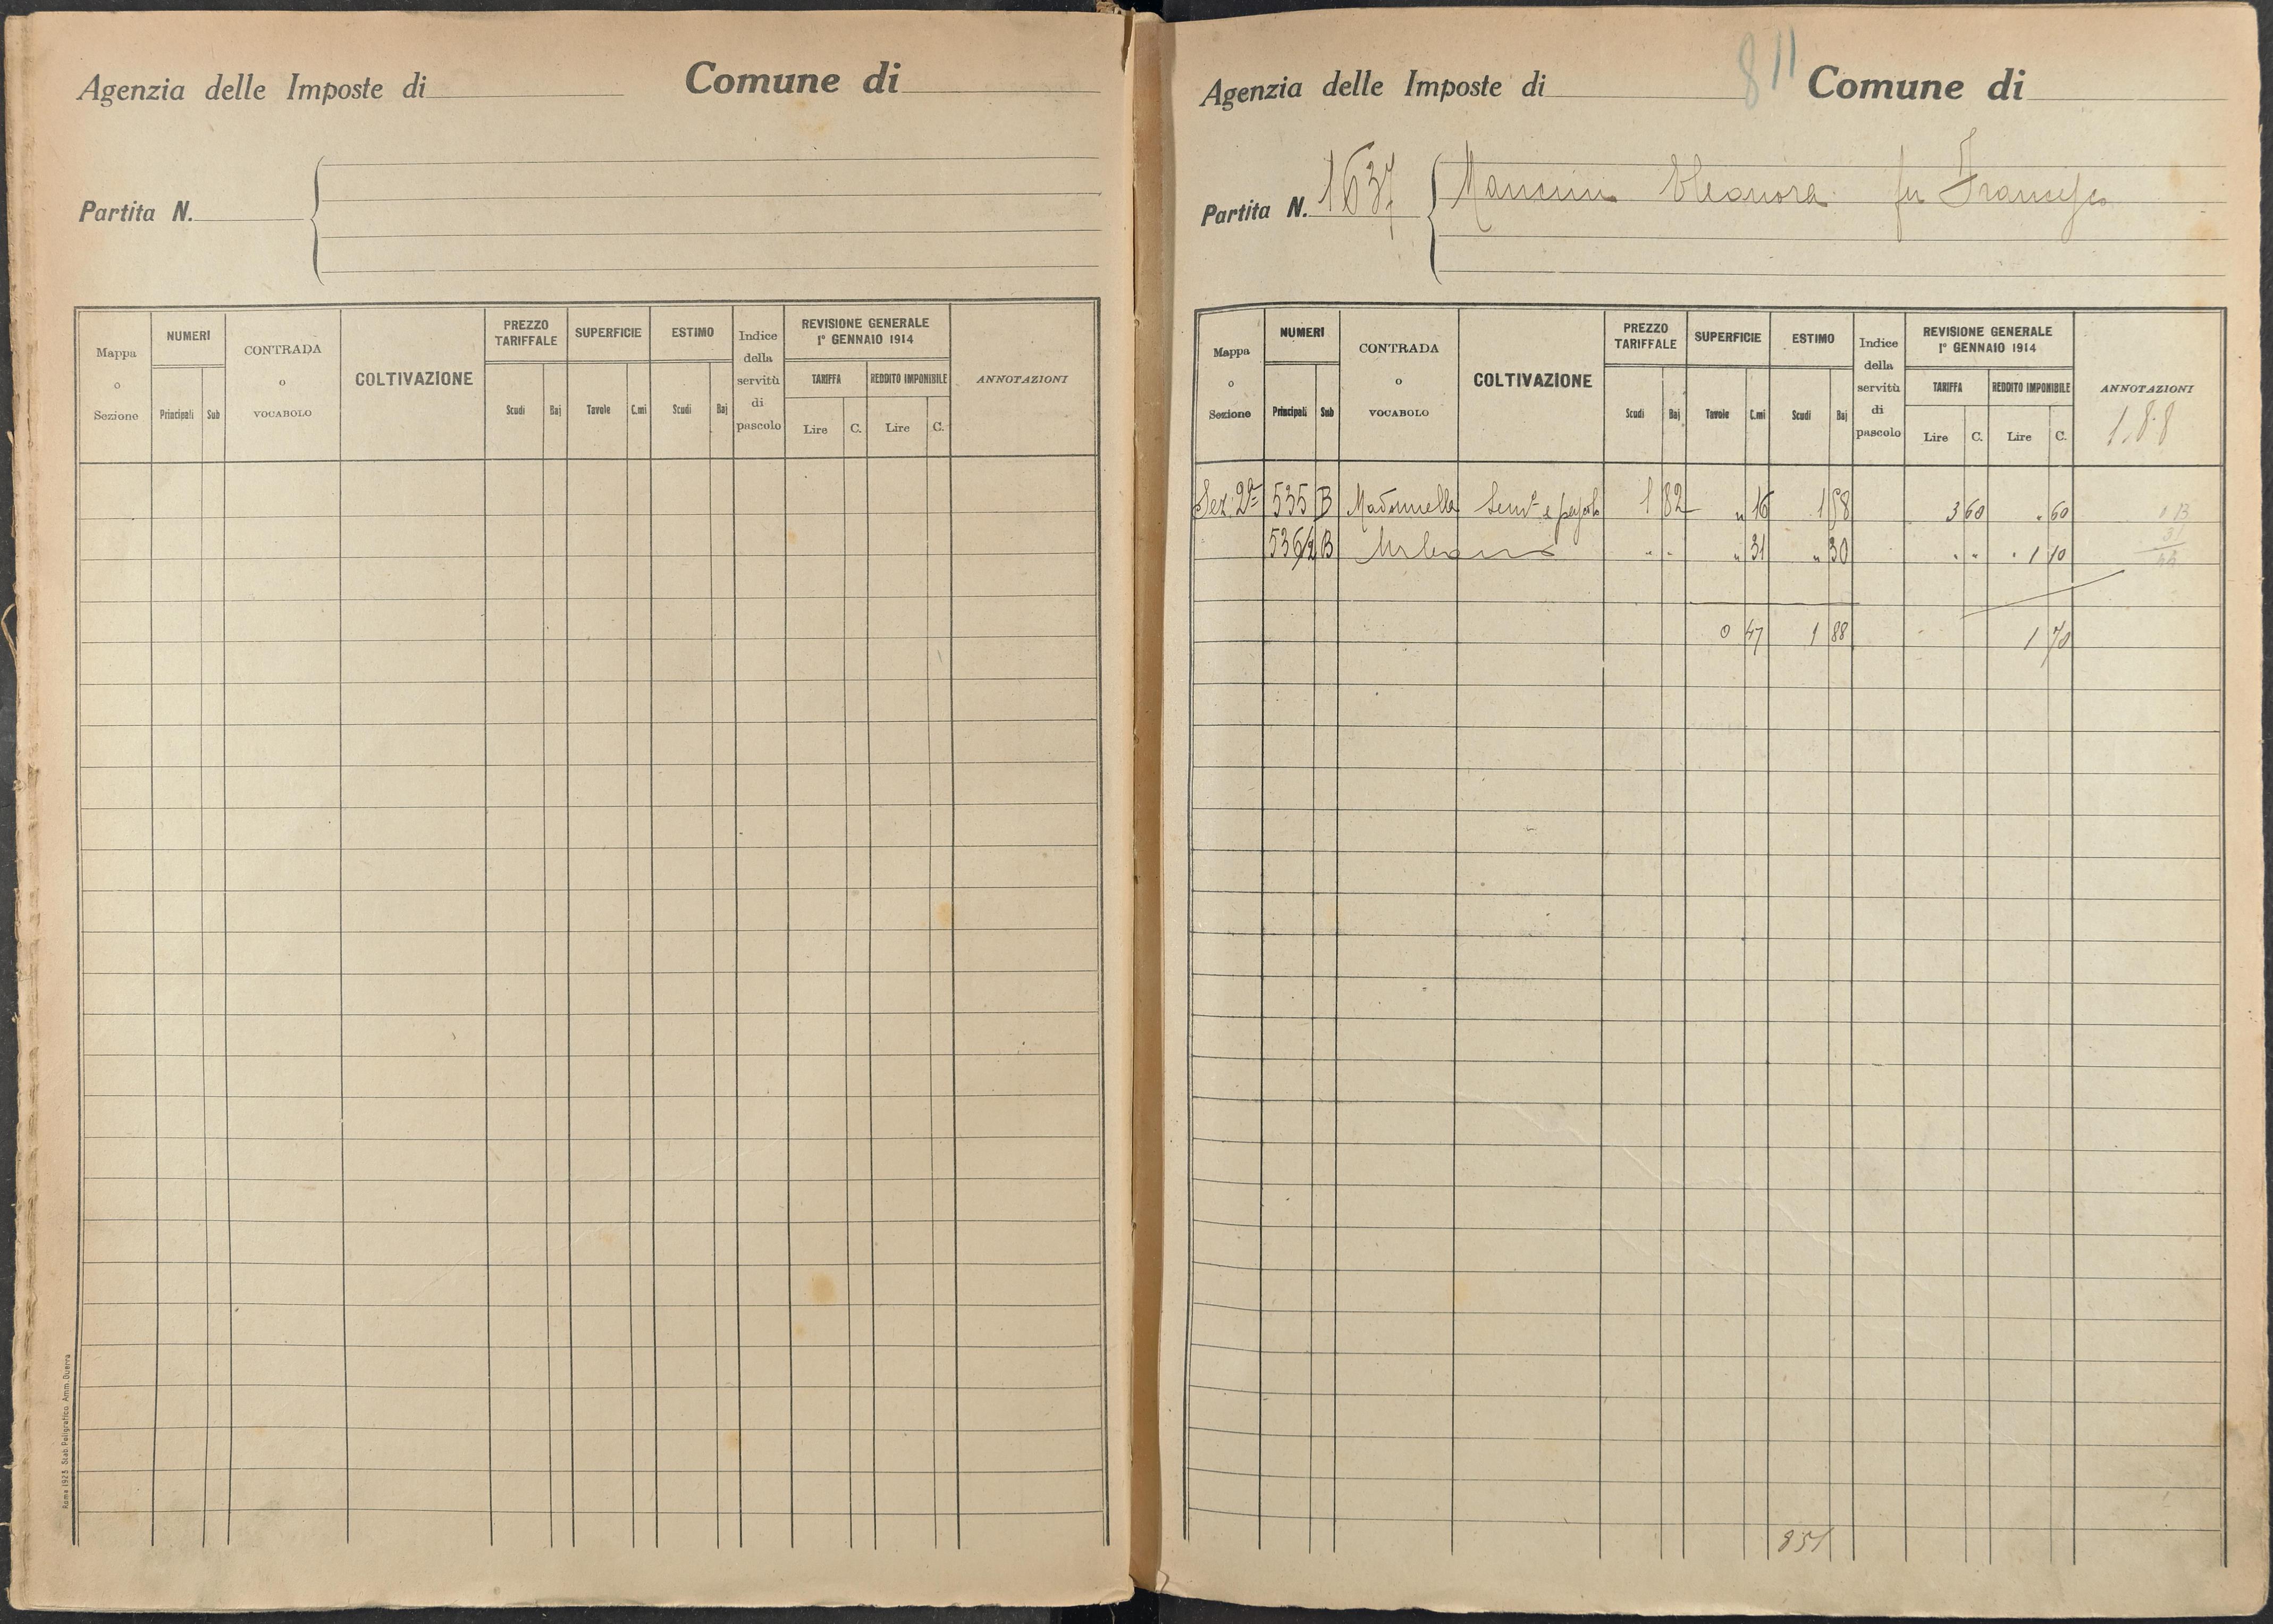 Agenzia delle Imposte di Comune di
Partita N.
Mappa o Sezione
NUMERI
Principali Sub
CONTRADA o VOCABOLO
COLTIVAZIONE
PREZZO TARIFFALE
Scudi Baj
SUPERFICIE
Tavole C.mi
ESTIMO
Scudi Baj
Indice della servitù di pascolo
REVISIONE GENERALE
1° GENNAIO 1914
TARIFFA REDDITO IMPONIBILE
Lire C. Lire C.
ANNOTAZIONI
Roma 1925 Stab. Poligrafico Amm. Guerra
811
Agenzia delle Imposte di Comune di
Partita N. 1637 Mancini Eleonora fu Francesco
Mappa o Sezione
NUMERI
Principali Sub
CONTRADA o VOCABOLO
COLTIVAZIONE
PREZZO TARIFFALE
Scudi Baj
SUPERFICIE
Tavole C.mi
ESTIMO
Scudi Baj
Indice della servitù di pascolo
REVISIONE GENERALE
1° GENNAIO 1914
TARIFFA REDDITO IMPONIBILE
Lire C. Lire C.
ANNOTAZIONI
1.88
Sez. 2ª 535 B Madonnella Semvº 1 82 " 16 1 58 3 60 . 60
536/2 B " " " 31 " 30 " " " 1 10
0 47 1 88 1 70
851